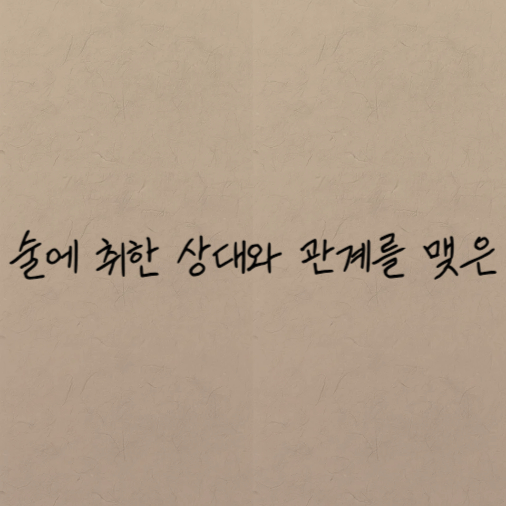 술에 취한 상대와 관계를 맺은